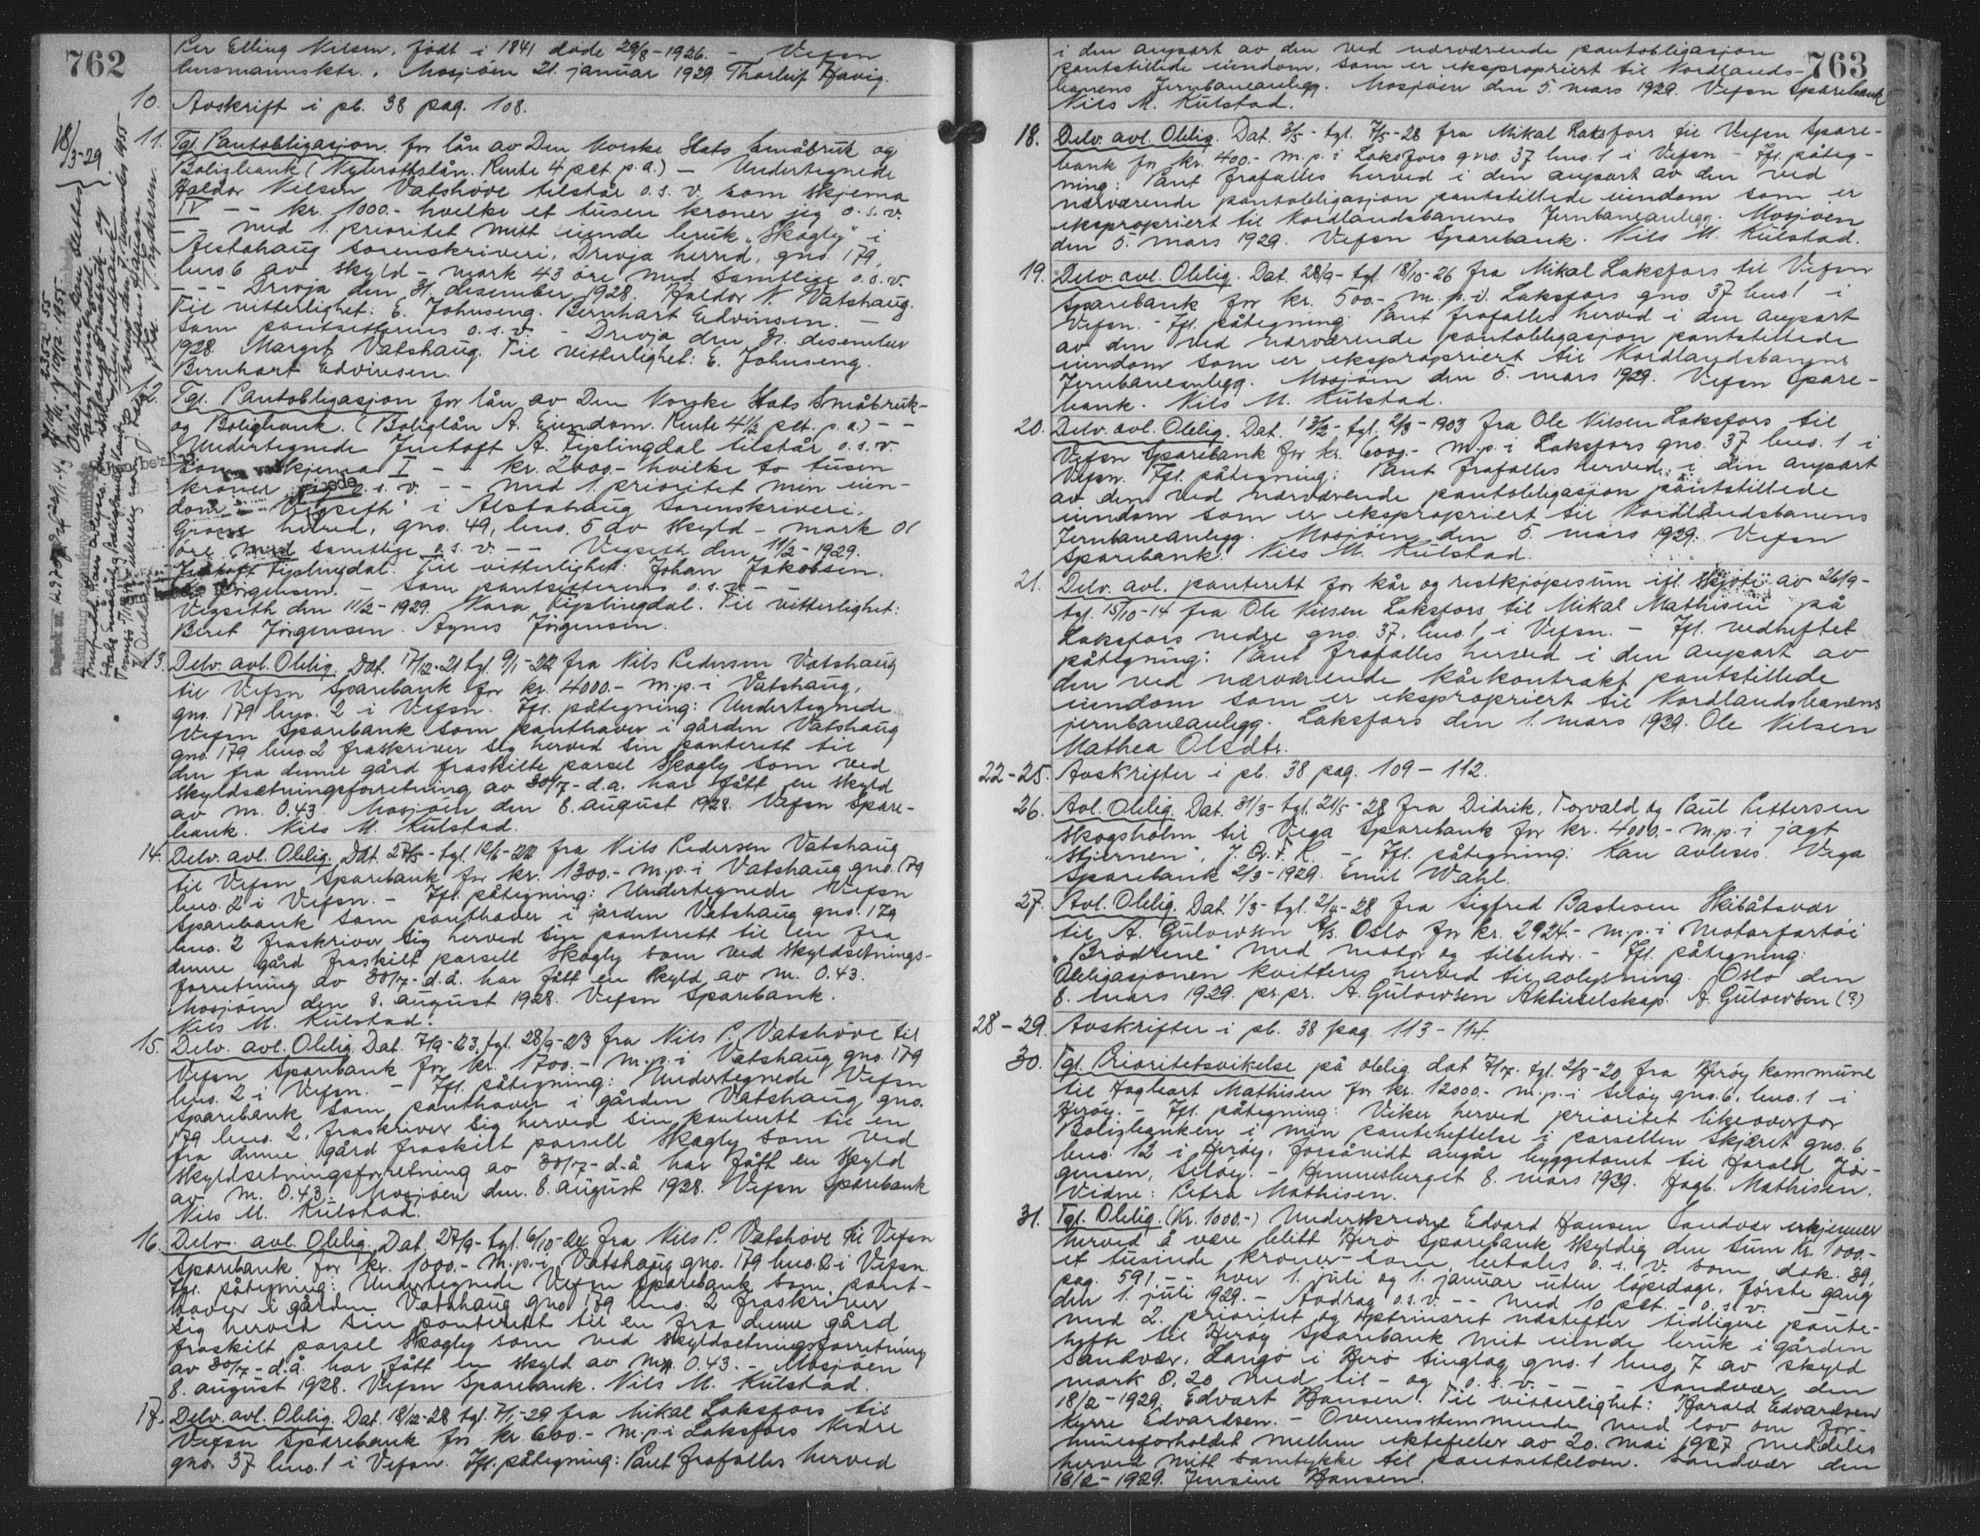 762
Per Elling Nilsen, født i 1841 døde 29/8-1926. – Vefsn
lensmannsktr., Mosjøen 21. januar 1929. Thorleif Havig.
10. Avskrift i pb. 38 pag. 108.
18/3-29
11. Tgl. Pantobligasjon for lån av Den Norske Stats Småbruk og
Boligbank (Nybrottslån. Rente 4 pct. p.a.) – Undertegnede
Haldor Nilsen Vatshøve tilstår o.s.v. som skjema
IV – – kr. 1000.- hvilke et tusen kroner jeg o.s.v.
– – med 1. prioritet mitt eiende bruk "Skogly" i
Alstahaug sorenskriveri, Drevja herred, gno. 179,
bno 6 av skyld – mark 43 øre med samtlige o.s.v.
– – – Drevja den 31. desember 1928. Haldor N. Vatshaug.
Til vitterlighet: E. Johnseng. Bernhart Edvinsen. –
Som pantsetterens o.s.v. – Drevja den 31. desember
1928. Margit Vatshaug. Til vitterlighet: E. Johnseng.
Bernhart Edvinsen.
12. Tgl. Pantobligasjon for lån av Den Norske Stats Småbruk-
og Boligbank. (Boliglån A. Eiendom. Rente 4 1/2 pct. p.a.) – –
Undertegnede Jentoft A. Fiplingdal tilstår o.s.v.
som skjema I – – kr. 2000.- hvilke to tusen
kroner jeg o.s.v. – – med 1. prioritet min eien-
dom "Vegseth" i Alstahaug Sorenskriveri,
Grane herred, gno. 49, bno. 5 av skyld – mark 01
øre med samtlige o.s.v. – – Vegseth den 11/2-1929.
Jentoft Fiplingdal. Til vitterlighet: Johan Jakobsen.
Jørgensen. – Som pantsetterens o.s.v. –
Vegseth den 11/2-1929. Nora Fiplingdal. Til vitterlighet:
Beret Jørgensen. Agnes Jørgensen.
13. Delv. avl. Oblig. Dat. 17/12-21 tgl. 9/1-22 fra Nils Pedersen Vatshaug
til Vefsn Sparebank for kr. 4000.- m.p. i Vatshaug,
gno. 179 bno. 2 i Vefsn. Ifl. påtegning: Undertegnede
Vefsn Sparebank som panthaver i gården Vatshaug
gno. 179 bno 2 fraskriver sig herved sin panterett til
den fra denne gård fraskilte parsel Skogly som ved
skyldsetningsforretning av 30/7-d.a. har fått en skyld
av m. 0.43. Mosjøen den 8. august 1928. Vefsn Spare-
bank. Nils M. Kulstad.
14. Delv. avl. Oblig. Dat. 27/5-tgl. 12/6-22 fra Nils Pedersen Vatshaug
til Vefsn Sparebank for kr. 1300.- m.p. i Vatshaug gno. 179
bno. 2 i Vefsn. – Ifl. påtegning: Undertegnede Vefsn
Sparebank som panthaver i gården Vatshaug gno. 179
bno. 2 fraskriver sig herved sin panterett til en fra
denne gård fraskilt parsell Skogly som ved skyldsetnings-
forretning av 30/7-d.å. har fått en skyld av m. 0.43.
Mosjøen den 8. august 1928. Vefsn Sparebank.
Nils M. Kulstad.
15. Delv. avl. Oblig. Dat. 7/9-23, tgl. 28/9-23 fra Nils P. Vatshøve til
Vefsn Sparebank for kr. 1700.- m.p. i Vatshaug gno. 179
bno. 2 i Vefsn. – Ifl. påtegning: Undertegnede Vefsn
Sparebank som panthaver i gården Vatshaug gno.
179 bno. 2, fraskriver sig herved sin panterett til en
fra denne gård fraskilt parsell Skogly som ved
skyldsetningsforretning av 30/7-d.å har fått en skyld
av m. 0.43. Mosjøen den. 8. august 1928. Vefsn Sparebank
Nils M. Kulstad.
16. Delv. avl. Oblig. Dat. 27/9-tgl. 6/10-24 fra Nils P. Vatshøve til Vefsn
Sparebank for kr. 1000.- m.p. i Vatshaug gno. 179 bno. 2 i Vefsn.
Ifl. påtegning: Undertegnede Vefsn Sparebank som pant-
haver i gården Vatshaug gno 179 bno. 2 fraskriver
sig herved sin panterett til en fra denne gård
fraskilt parsel Skogly som ved skyldsetningsforretning
av 30/7-d.å. har fått en skyld av m. 0.43. – Mosjøen
8. august 1928. Vefsn Sparebank. Nils M. Kulstad.
17. Delv. avl. Oblig. Dat. 18/12-28 tgl. 7/1-29 fra Mikal Laksfors til
Vefsn Sparebank for kr 600.- m.p. i Laksfors Nedre
gno. 37 bno. 1 i Vefsn. Ifl. påtegning: Pant frafalles herved
763
i den anpart av den ved nærværende pantobligasjon
pantstillede eiendom, som er ekspropriert til Nordlands-
banens Jernbaneanlegg. Mosjøen den 5. mars 1929. Vefsn Sparebank
Nils M. Kulstad.
18. Delv. avl. Oblig. Dat. 3/5-tgl. 7/5-28 fra Mikal Laksfors til Vefsn Spare-
bank for kr. 400.- m.p. i Laksfors gno. 37 bno. 1 i Vefsn – Ifl. påteg-
ning: Pant frafalles herved i den anpart av den ved
nærværende pantobligasjon pantstillede eiendom som er
ekspropriert til Nordlandsbanenes Jernbaneanlegg. Mosjøen
den 5. mars 1929. Vefsn Sparebank. Nils M. Kulstad.
19. Delv. avl. Oblig. Dat. 28/9-tgl. 18/10-26 fra Mikal Laksfors til Vefsn
Sparebank for kr. 500.- m.p. i. Laksfors gno. 37 bno. 1 i
Vefsn. – Ifl. påtegning: Pant frafalles herved i den anpart
av den ved nærværende pantobligasjon pantstillede
eiendom som er ekspropriert til Nordlandsbanens
Jernbaneanlegg. Mosjøen den 5. mars 1929. Vefsn Spare-
bank. Nils M. Kulstad.
20. Delv. avl. Oblig. Dat. 13/2-tgl. 2/3-1903 fra Ole Nilsen Laksfors til
Vefsn Sparebank for kr. 6000.- m.p. i Laksfors gno. 37 bno. 1 i
Vefsn. Ifl. påtegning: Pant frafalles herved i den anpart
av den ved nærværende pantobligasjon pantstillede
eiendom som er ekspropriert til Nordlandsbanens
Jernbaneanlegg. Mosjøen den 5. mars 1929. Vefsn
Sparebank. Nils M. Kulstad.
21. Delv. avl. panterett for kår og restkjøpesum ifl. skjøte av 26/9-
tgl. 15/10-14 fra Ole Nilsen Laksfors til Mikal Mathisen på
Laksfors nedre gno. 37, bno. 1 i Vefsn. – Ifl. vedheftet
påtegning: Pant frafalles herved i den anpart av
den ved nærværende kårkontrakt pantstillede
eiendom som er ekspropriert til Nordlandsbanens
jernbaneanlegg. Laksfors den 1. mars 1929. Ole Nilsen
Mathea Olsdtr.
22-25. Avskrifter i pb. 38 pag. 109 – 112.
26. Avl. Oblig. Dat. 31/3-tgl. 21/5-28 fra Didrik, Torvald og Paul Pettersen
Skogsholm til Vega Sparebank for kr. 4000.- m.p. i jagt
"Stjernen", J. Q. F. K. – Ifl. påtegning: Kan avlæses. Vega
Sparebank 2/3-1929. Emil Wahl.
27. Avl. Oblig. Dat. 1/3-tgl. 2/4-28 fra Sigfred Bastesen Skibåtsvær
til A. Gulowsen A/S Oslo for kr. 2924.- m.p. i Motorfartøi
"Brødrene" med motor og tilbehør. – Ifl. påtegning:
Obligasjonen kvitteres herved til avlysning. Oslo den
8. mars 1929. pr. pr. A. Gulowsen Aktieselskap. A. Gulowsen (?)
28 – 29. Avskrifter i pb. 38 pag. 113 – 114.
30. Tgl. Prioritetsvikelse på oblig dat 7/7. tgl. 2/8-20, fra Herøy kommune
til Fagbart Mathisen for kr. 12000.- m.p. i Seløy gno. 6, bno. 1 i
Herøy. – Ifl. påtegning: Viker herved prioritet likeoverfor
Boligbanken i min panteheftelse i parsellen Skjæret gno. 6
bno. 12 i Herøy, forsåvidt angår byggetomt til Harald Jør-
gensen, Seløy. – Hennesberget 8. mars 1929. Fagb. Mathisen.
Vidne: Petra Mathisen.
31. Tgl. Oblig. (Kr. 1000.-) Underskrevne Edvard Hansen Sandvær erkjenner
herved å være blitt Herø Sparebank skyldig den sum kr. 1000.-
et tusinde kroner – som betales o.s.v. som dok. 39,
pag. 591 – – hver 1. juli og 1. januar uten løpedage, første gang
den 1. juli 1929. – Avdrag o.s.v. – – med 10 pct. – o.s.v. –
med 2. prioritet og optrinsret næstefter tidligere pante-
hefte til Herøy Sparebank mit eiende bruk i gården
Sandvær, Langø i Herø tinglag gno. 1 bno 7 av skyld
mark 0.20 med til- og o.s.v. – Sandvær den
18/2-1929, Edvart Hansen. Til vitterlighet: Harald Edvardsen
Kyrre Edvardsen. – Overensstemmende med lov om for-
muesforholdet mellem ektefeller av 20. mai 1927 meddeles
herved mitt samtykke til pantsettelsen. Sandvær den
18/2-1929. Jensine Hansen.